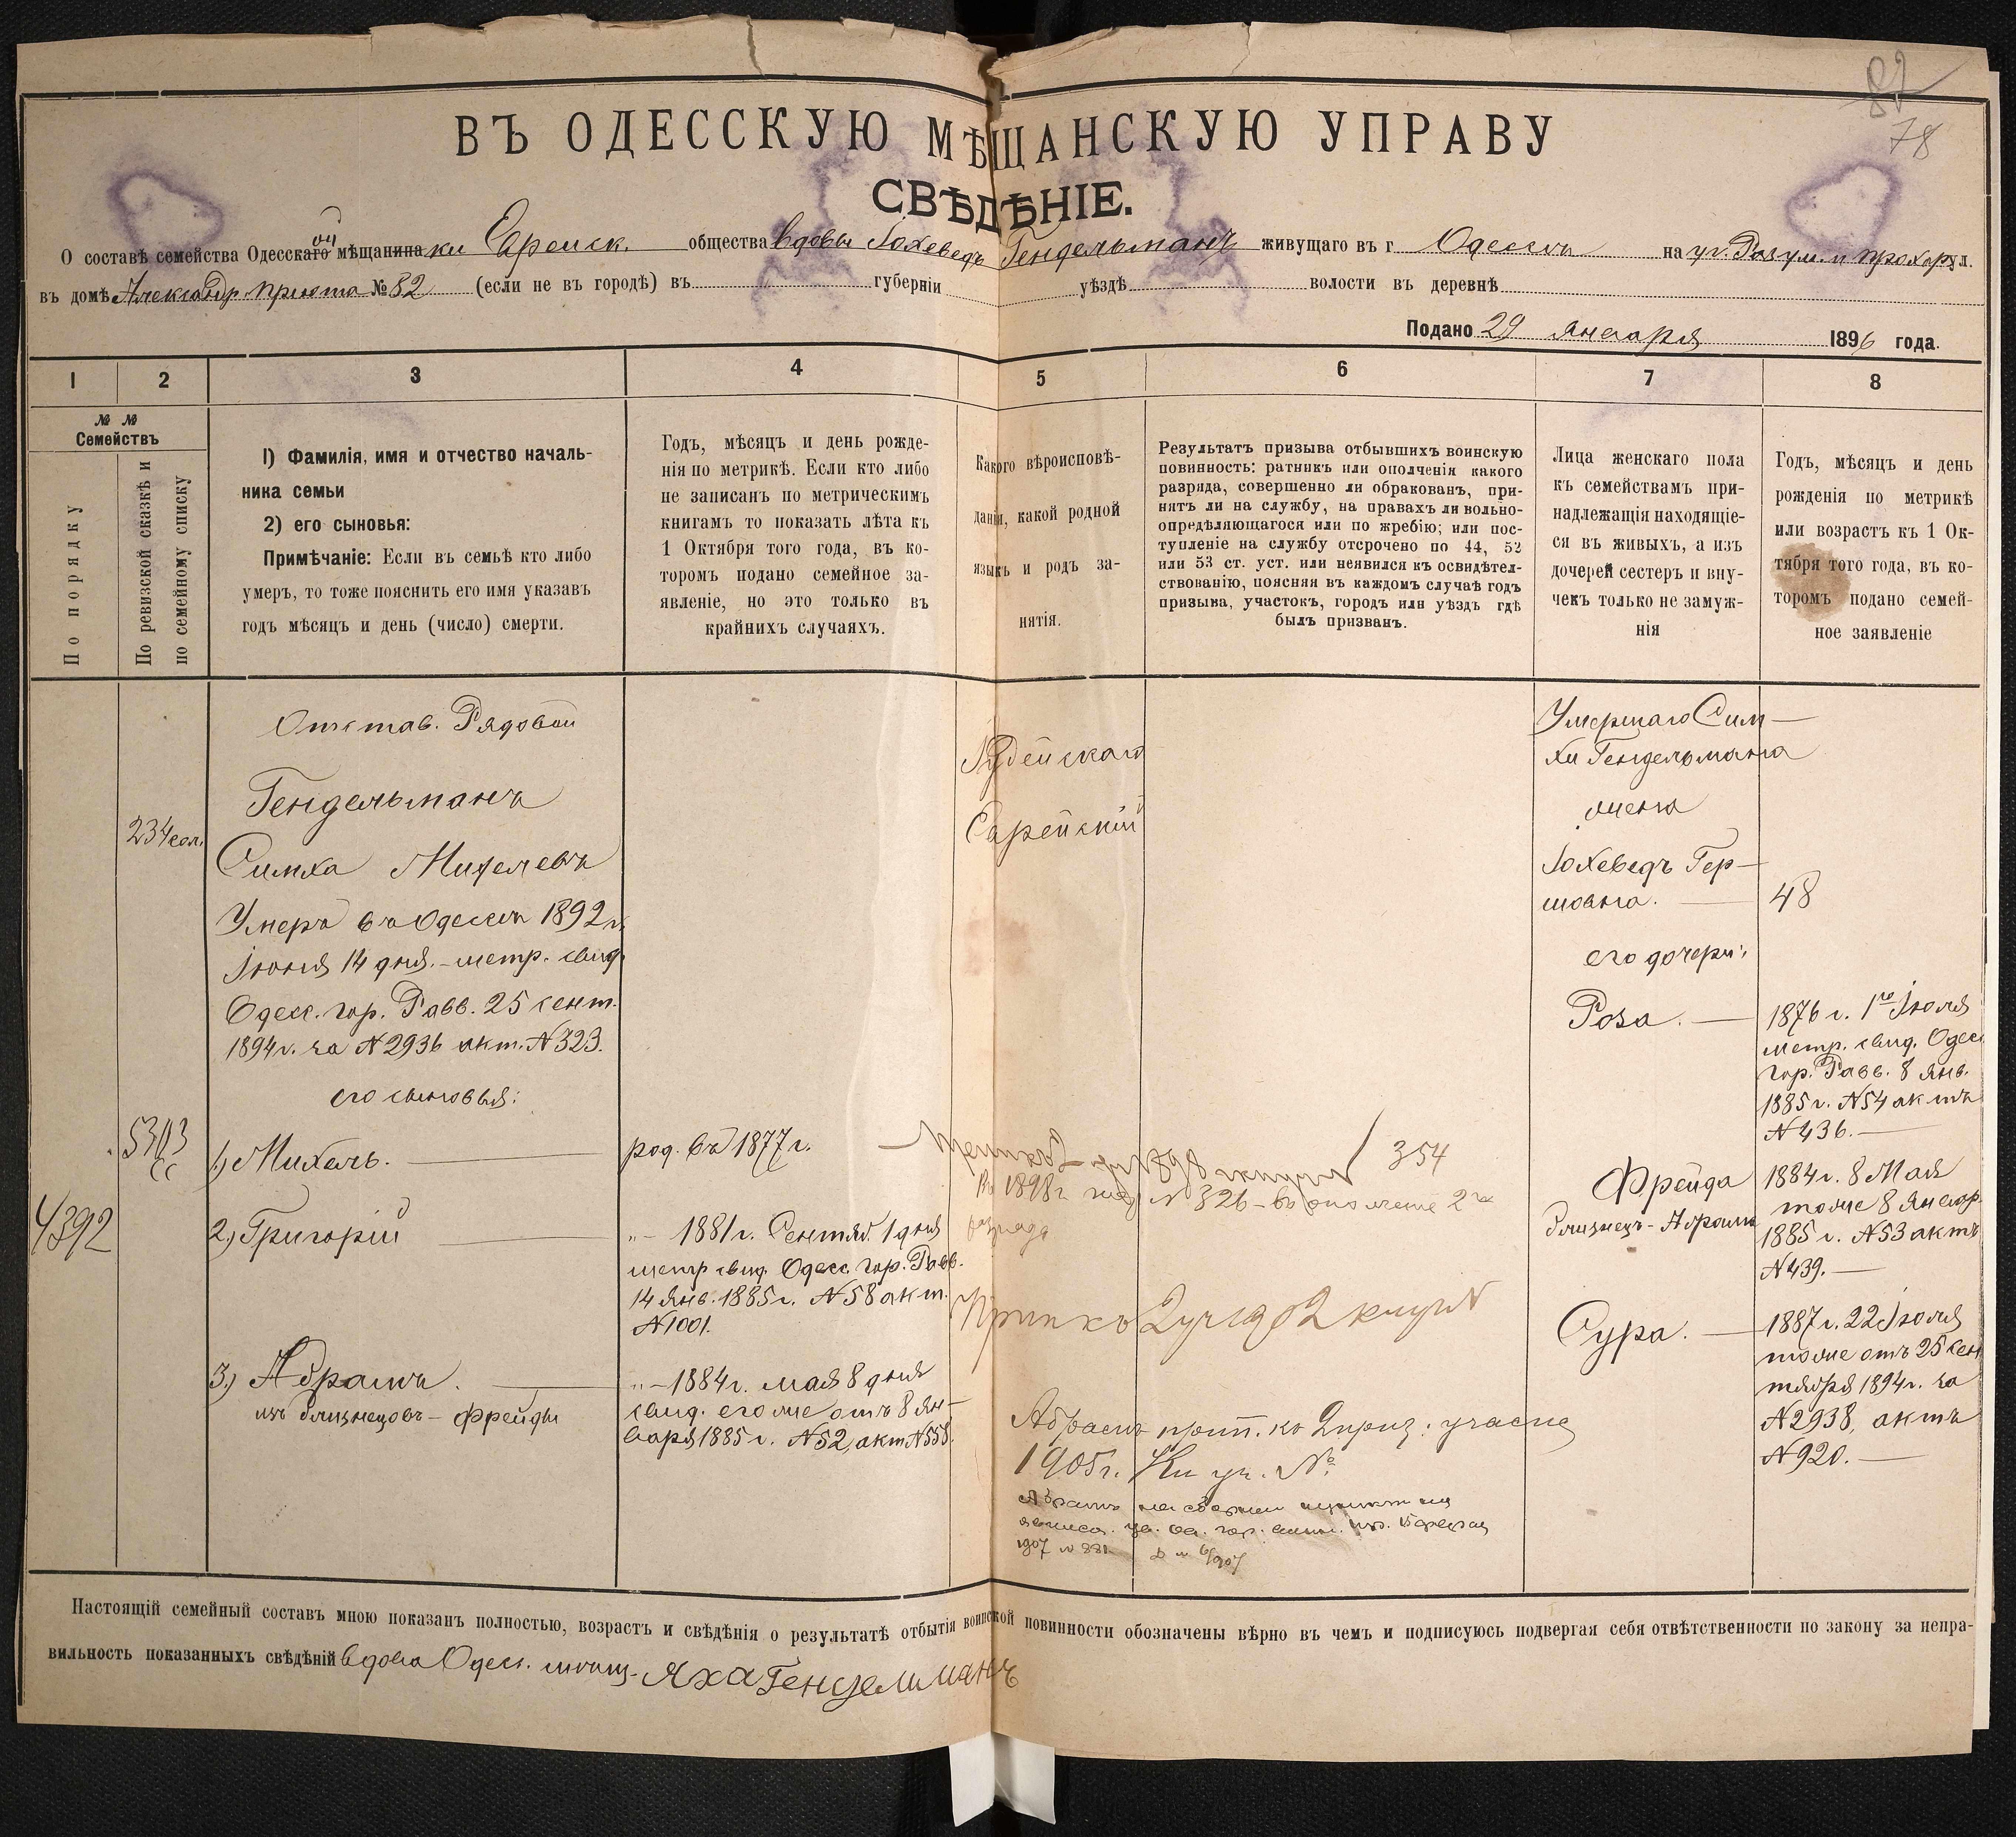 82
78
ВЪ ОДЕССКУЮ МѢЩАНСКУЮ УПРАВУ
СВѢДѢНІЕ.
О составѣ семейства Одесскаго ой мѣщанина ки Еврейск. общества вдовы Іохеведъ Гендельманъ живущаго въ г. Одессѣ на уг. Разум. и Прохор ул.
въ домѣ Александр. приюта № 82 (если не въ городѣ) въ губерніи уѣздѣ волости въ деревнѣ
Подано 29 января 1896 года.
1 2 3 4 5 6 7 8
№ №
Семействъ
По порядку
По ревизской сказкѣ и
по семейному списку
1) Фамилія, имя и отчество началь-
ника семьи
2) его сыновья:
Примѣчаніе: Если въ семьѣ кто либо
умеръ, то тоже пояснить его имя указавъ
годъ мѣсяцъ и день (число) смерти.
Годъ, мѣсяцъ и день рожде-
нія по метрикѣ. Если кто либо
не записанъ по метрическимъ
книгамъ то показать лѣта къ
1 Октября того года, въ ко-
торомъ подано семейное за-
явленіе, но это только въ
крайнихъ случаяхъ.
Какого вѣроисповѣ-
данія, какой родной
языкъ и родъ за-
нятія.
Результатъ призыва отбывшихъ воинскую
повинность: ратникъ или ополченія какого
разряда, совершенно ли обракованъ, при-
нятъ ли на службу, на правахъ ли вольно-
опредѣляющагося или по жребію; или пос-
тупленіе на службу отсрочено по 44, 52
или 53 ст. уст. или неявился къ освидѣтел-
ствованію, поясняя въ каждомъ случаѣ годъ
призыва, участокъ, городъ или уѣздъ гдѣ
былъ призванъ.
Лица женскаго пола
къ семействамъ при-
надлежащія находящіе-
ся въ живыхъ, а изъ
дочерей сестеръ и вну-
чекъ только не замуж-
нія
Годъ, мѣсяцъ и день
рожденія по метрикѣ
или возрастъ къ 1 Ок-
тября того года, въ ко-
торомъ подано семей-
ное заявленіе
234
5303
сс
4392
Отстав. Рядовой
Гендельманъ
Симха Михелевъ
Умеръ въ Одессѣ 1892 г.
Іюня 14 дня. – метр. свид.
Одесс. гор. Равв. 25 сент.
1894 г. за № 2936 акт. № 323.
его сыновья:
1.) Михель.
2.) Григорій
3.) Абрамъ.
изъ близнецовъ – Фрейды
род. въ 1877 г.
"– 1881 г. Сентяб. 1 дня
метр свид. Одесс. гор. Равв.
14 Янв. 1885 г. № 58 акт.
№ 1001.
"– 1884 г. мая 8 дня
свид. его же отъ 8 Ян-
варя 1885 г. № 52, акт № 558.
Іудейскаго
Еврейскій
354
въ 1898 г. № 326 – въ ополчение 2 го
разряда
Прип къ 2 уч 1902
Абрамъ прип. къ 2 приз. участку
1905 г. Кн уч. №
Абрамъ на сборном
1907 № 881.
Умершаго Сим-
хи Гендельмана
жена
Іохеведъ Гер-
шовна.
его дочери:
Роза.
Фрейда
близнецъ – Абрама
Сура.
48
1876 г. 1го Іюля
метр. свид. Одес.
гор. Равв. 8 Янв.
1885 г. № 54 актъ
№ 436.
1884 г. 8 Мая
тоже 8 Январ.
1885 г. № 53 актъ
№ 439.
1887 г. 22 Іюля
тоже отъ 25 сен
тября 1894 г. за
№ 2938, актъ
№ 920.
Настоящій семейный составъ мною показанъ полностью, возрастъ и свѣдѣнія о результатѣ отбытія воинской повинности обозначены вѣрно въ чемъ и подписуюсь подвергая себя отвѣтственности по закону за непра-
вильность показанныхъ свѣдѣній вдова Одесс. мѣщ. Яха Гендельманъ